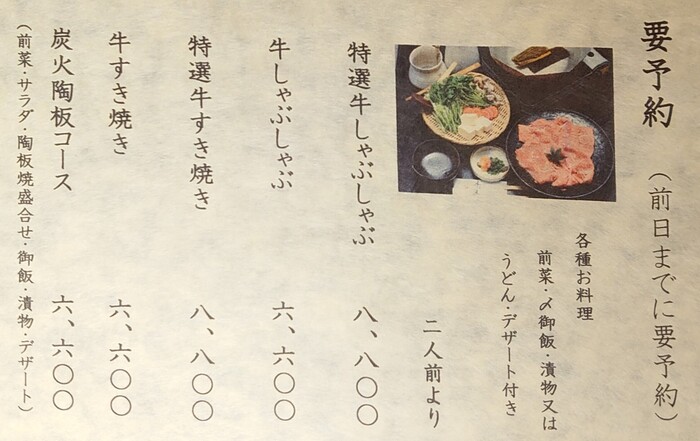 要予約 （前日までに要予約）
各種お料理
前菜・〆御飯・漬物又は
うどん・デザート付き
二人前より
特選牛しゃぶしゃぶ 八、八〇〇
牛しゃぶしゃぶ 六、六〇〇
特選牛すき焼き 八、八〇〇
牛すき焼き 六、六〇〇
炭火陶板コース 六、六〇〇
（前菜・サラダ・陶板焼盛合せ・御飯・漬物・デザート）